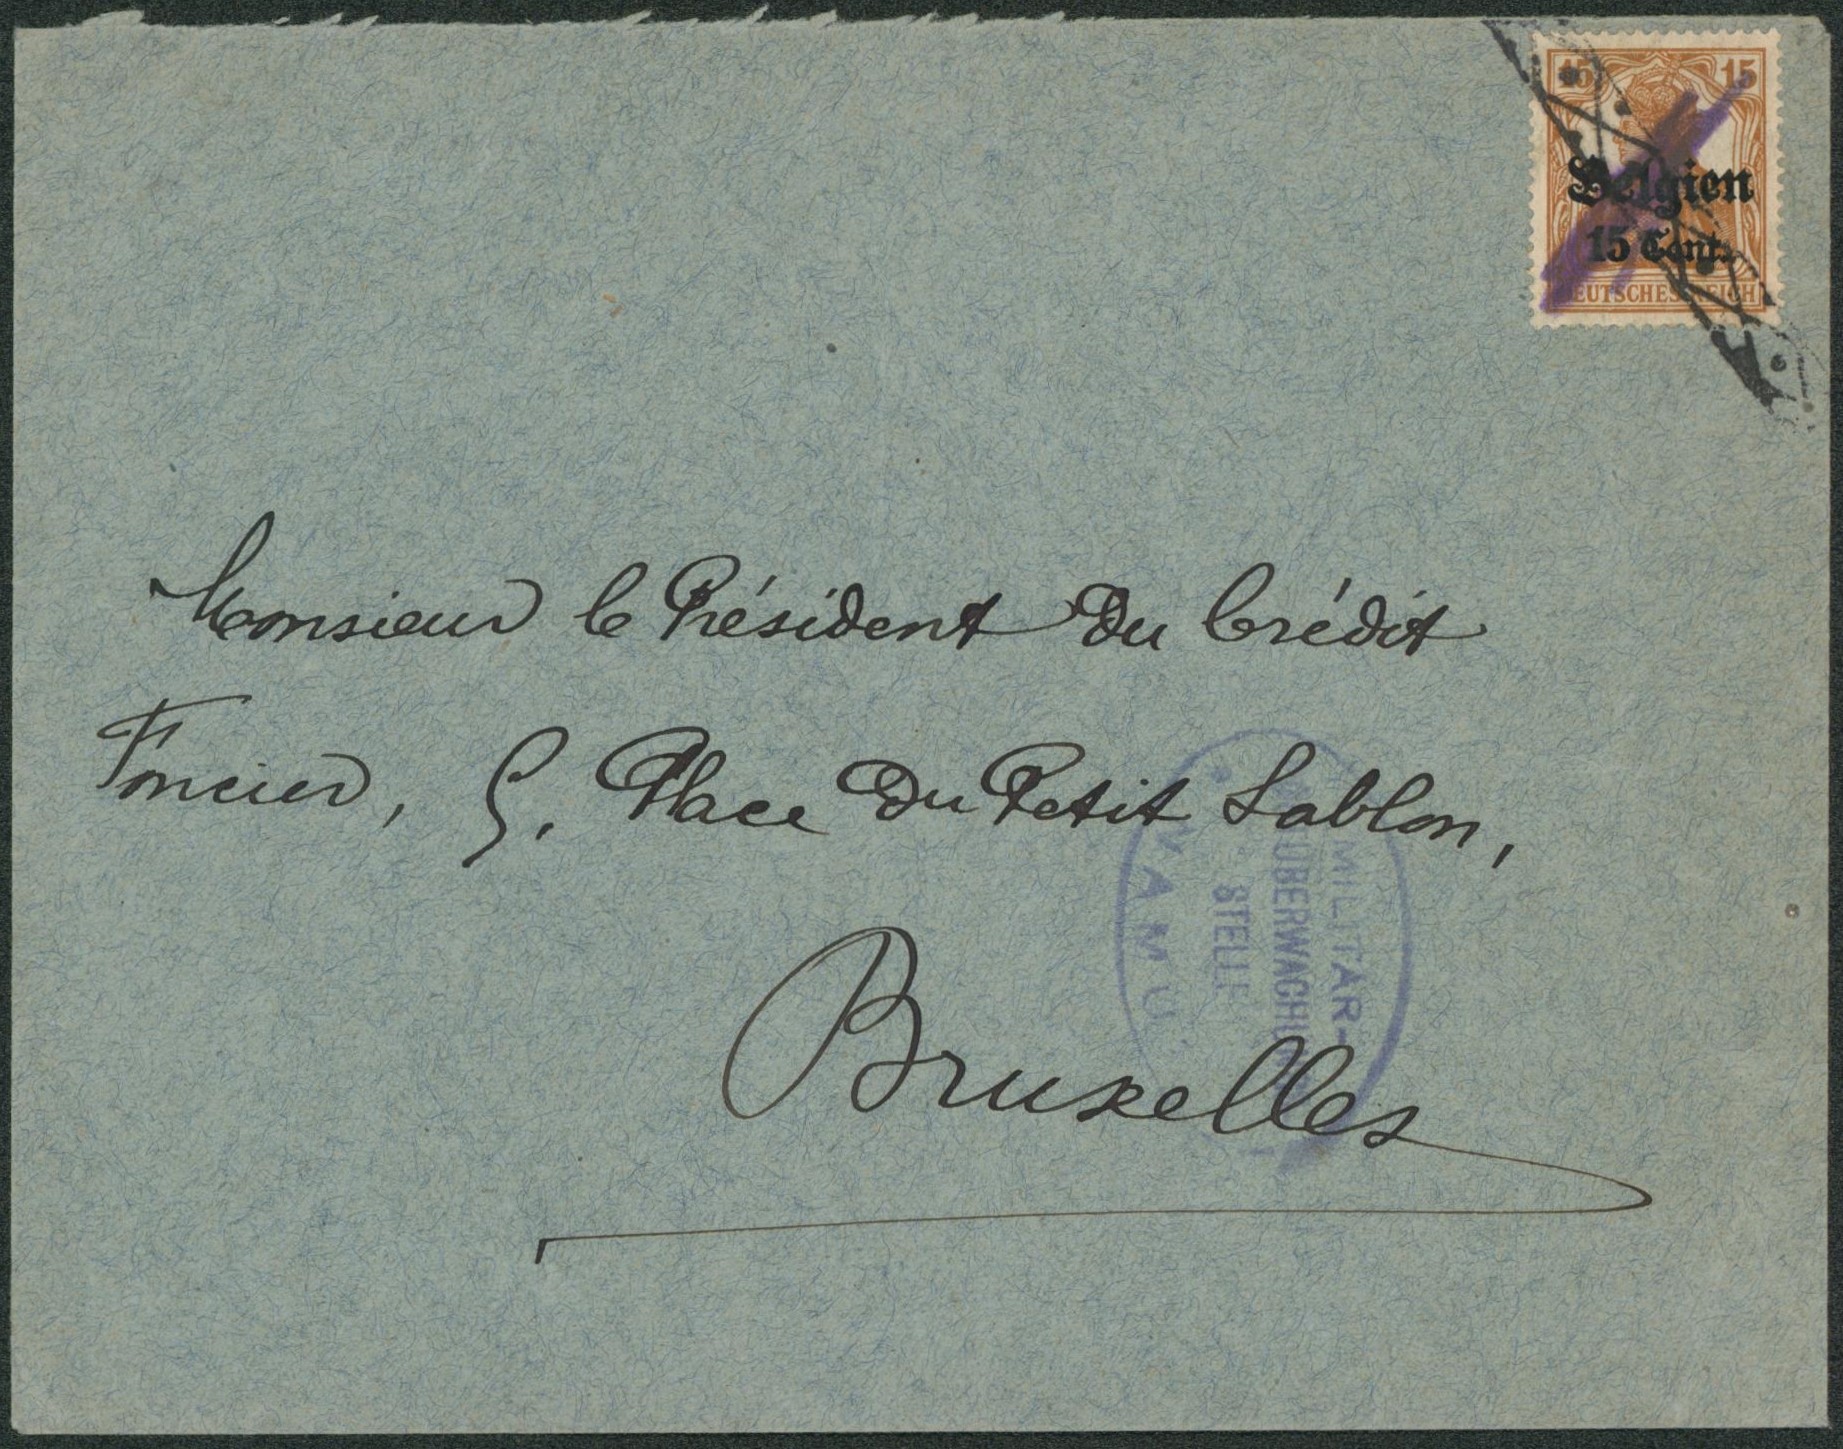 15 15
Belgien
15 Cent.
DEUTSCHES REICH
Monsieur le Président du Crédit
Foncier, 5. Place du Petit Sablon,
Bruxelles
MILITÄR-
STELLE